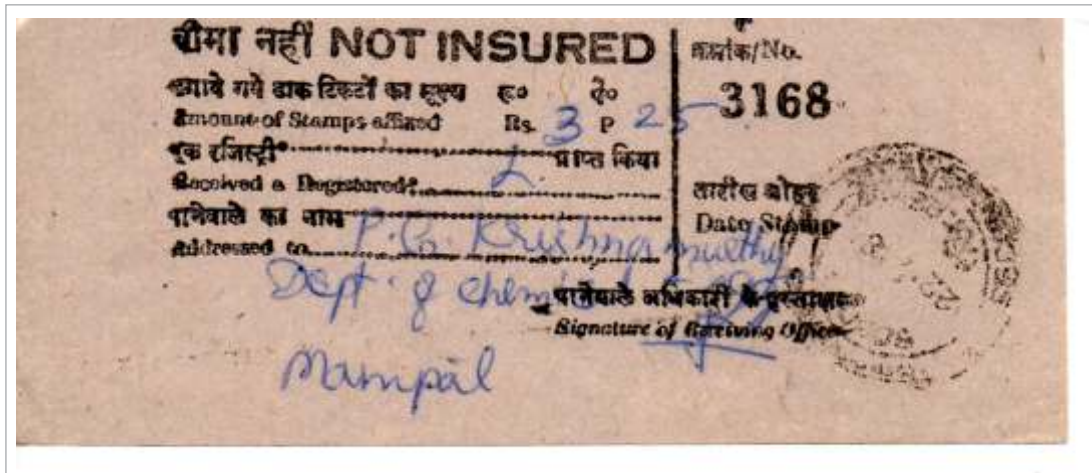 बीमा नहीं NOT INSURED
क्रमांक/No.
3168
लगाये गये डाक टिकटों का मूल्य रु० पै०
Amount of Stamps affixed Rs. 3 P 25
एक रजिस्ट्री प्राप्त किया
Received a Registered* L
पानेवाले का नाम
Addressed to P.G. Krishnamurthy
Dept. of Chem
Manipal
तारीख मोहर
Date Stamp
पानेवाले अधिकारी के हस्ताक्षर
Signature of Receiving Officer